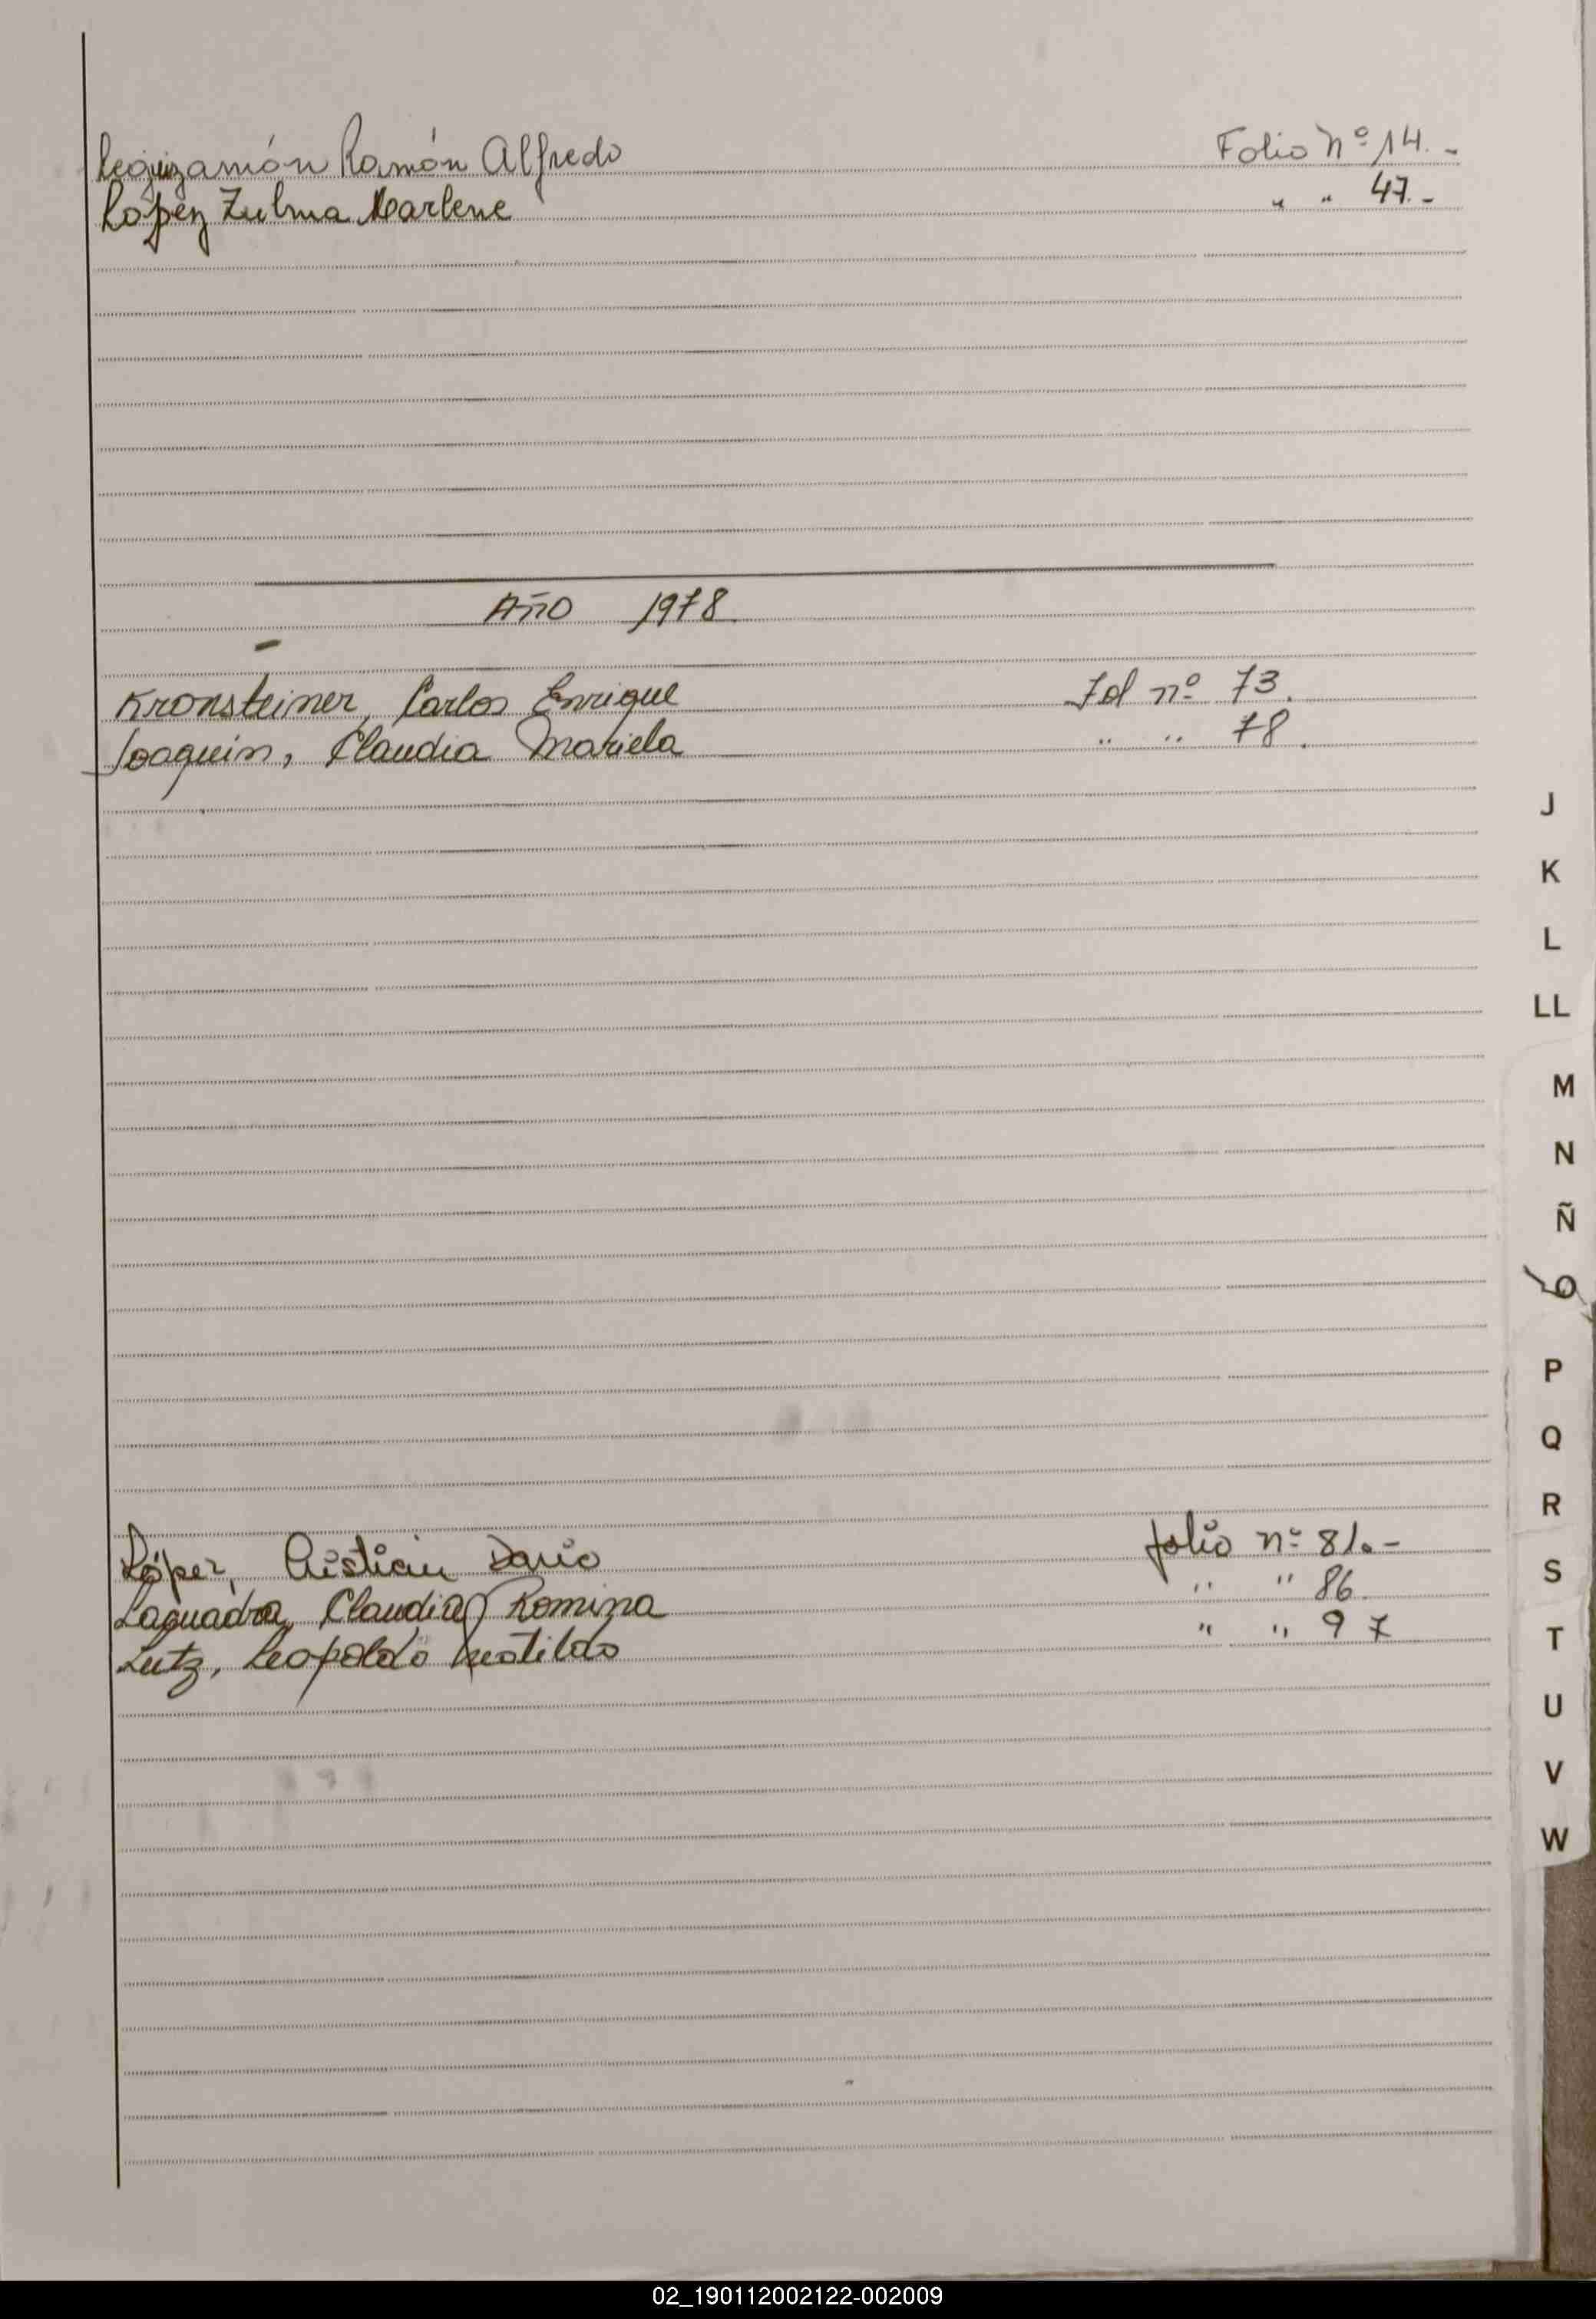 Leguizamón Ramón Alfredo Folio Nº 14.-
López Zulma Marlene " " 47.-
Año 1978.
Kronsteiner, Carlos Enrique Fol nº 73.
Joaquin, Claudia Mariela " " 78.
J
K
L
LL
M
N
Ñ
O
P
Q
R
S
T
U
V
W
López, Cristian Dario folio nº 81.-
Laquadra, Claudia Romina " " 86.
Lutz, Leopoldo " " 97
02_190112002122-002009